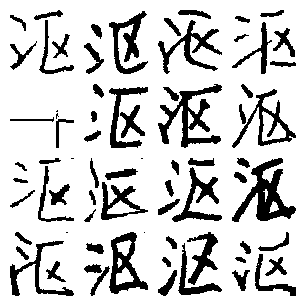 沤沤沤沤
沤沤沤
沤沤沤沤
沤沤沤沤